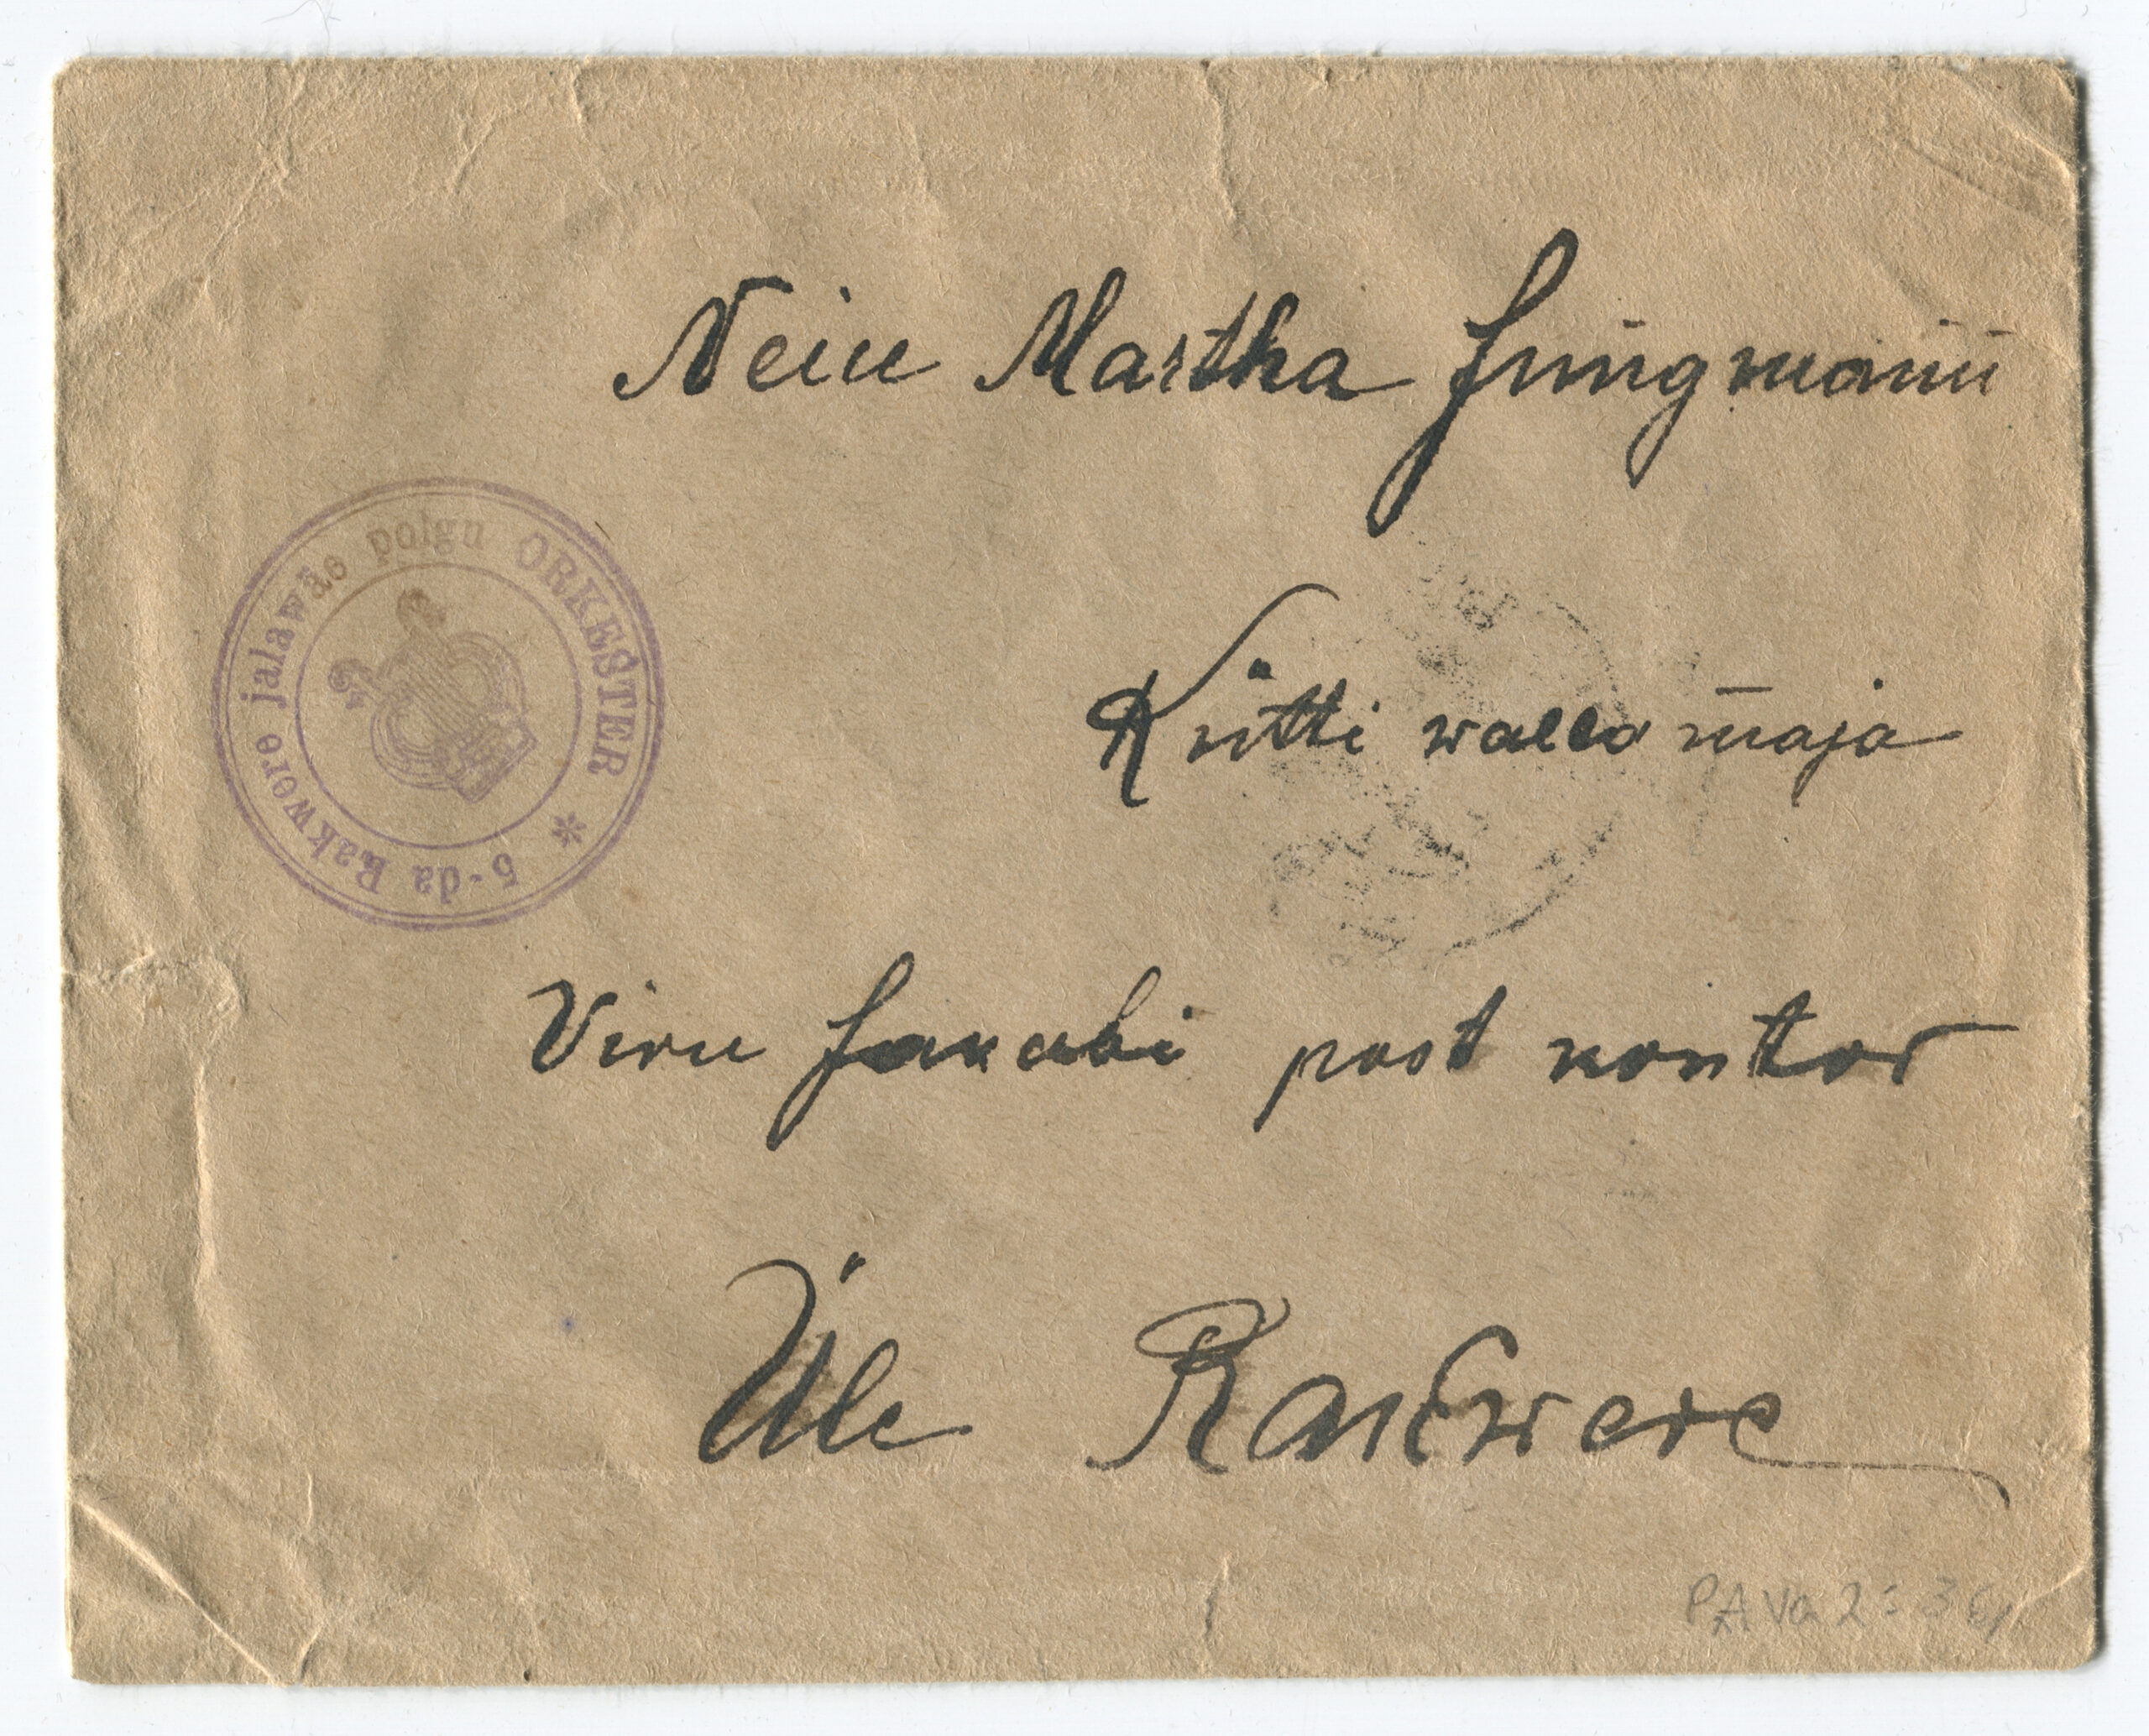 Neiu Martha Jungmann
5-da Rakwere jalawäe polgu ORKESTER *
Kütti walla maja
Viru Jakobi post kontor
Üle Rakwere
PA Va 2: